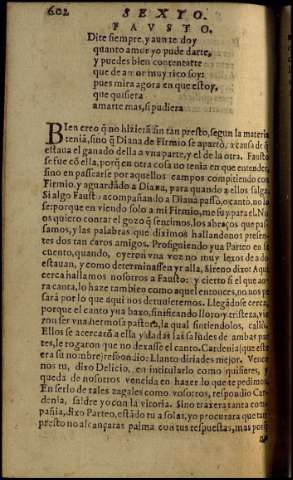 602
SEXTO.
FAVSTO.
Dite siempre, y aun te doy
quanto amor yo pude darte,
y puedes bien contentarte
que de amor muy rico soy:
pues mira agora en que estoy,
que quisiera
amarte mas, si pudiera
Bien creo q̃ no hiziera sin tan presto, segun la materia
tenia, sino q̃ Diana de Firmio se aparto, a causa de q̃
estaua el ganado della a vna parte, y el de la otra. Fausto
se fue cõ ella, porq̃ en otra cosa no tenia en que entender,
sino en passearse por aquellos campos compitiendo con
Firmio, y aguardãdo a Diana, para quando a ellos salga.
Si algo Fausto acompañando a Diana passò, o canto, no lo
se: porque en viendo solo a mi Firmio, me fuy para el. No
os quiero contar el gozo q̃ sentimos, los abraços que pas-
samos, y las palabras que diximos hallandonos presen-
tes dos tan caros amigos. Prosiguiendo yua Parteo en su
cuento, quando, oyeron vna voz no muy lexos de a do
estauan, y como determinassen yr alla, Sireno dixo: Aqui
cerca hallamos nosotros a Fausto: y cierto si el que ao-
ra canta, lo haze tambien como aquel entonces, no nos pe
sarà por lo que aqui nos detuuieremos. Llegãdose cerca,
porque el canto yua baxo, sinificando lloro y tristeza, vie
ron ser vna hermosa pastora, la qual sintiendolos, callò.
Ellos se acercaron a ella y dadas las saludes de ambas par
tes, le rogaron que no dexasse el canto. Cardenia (que este
era su nombre) respondio: Llanto diriades mejor. Vence
nos tu, dixo Delicio, en intitularlo como quisieres, y
queda de nosotros vencida en hazer lo que te pedimos.
En serlo de tales zagales como vosotros, respondio Car-
denia, saldre yo con la vitoria. Sino traxera tanta com-
pañia, dixo Parteo, estãdo tu a solas, yo procurara que tan
presto no alcançaras palma con tus respuestas, mas porq̃